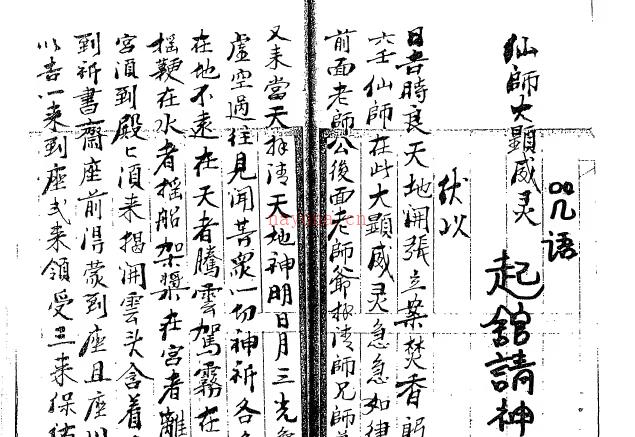 咒语
起舘請神
仙師大顯威灵
伏以
日吉時良天地開張立案焚香
六壬仙師在此大顯威灵急急如律
前面老師公後面老師爺拜請師兄師
又来當天拜請天地神明日月三光
虚空過往見聞菩衆一切神祈各
在地不遠在天者騰雲駕霧在
摇鞭在水者摇船架槳在宮者離
宮湏到殿匕湏来揭開雲头含着
到祈書齋座前淂蒙到座且座
以告一来到座弍来領受三来保